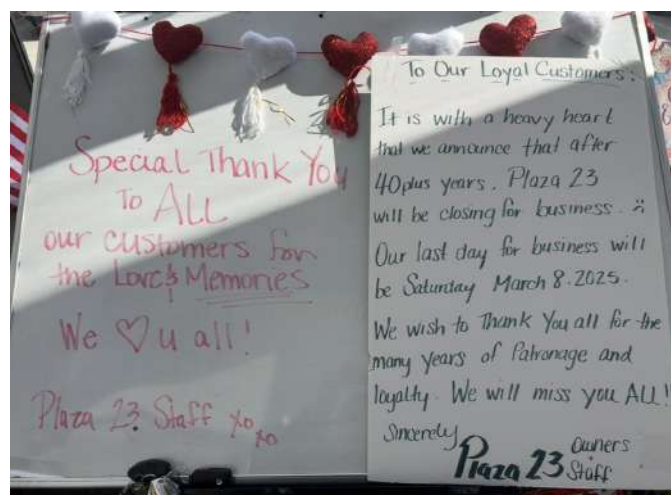 Special Thank You
To ALL
our customers for
the Love & Memories
We ♡ u all!
Plaza 23 Staff xo
xo
To Our Loyal Customers:
It is with a heavy heart
that we announce that after
40 plus years, Plaza 23
will be closing for business. :(
Our last day for business will
be Saturday March 8.2025.
We wish to Thank You all for the
many years of Patronage and
loyalty. We will miss you ALL!
Sincerely
Plaza 23 Owners
Staff